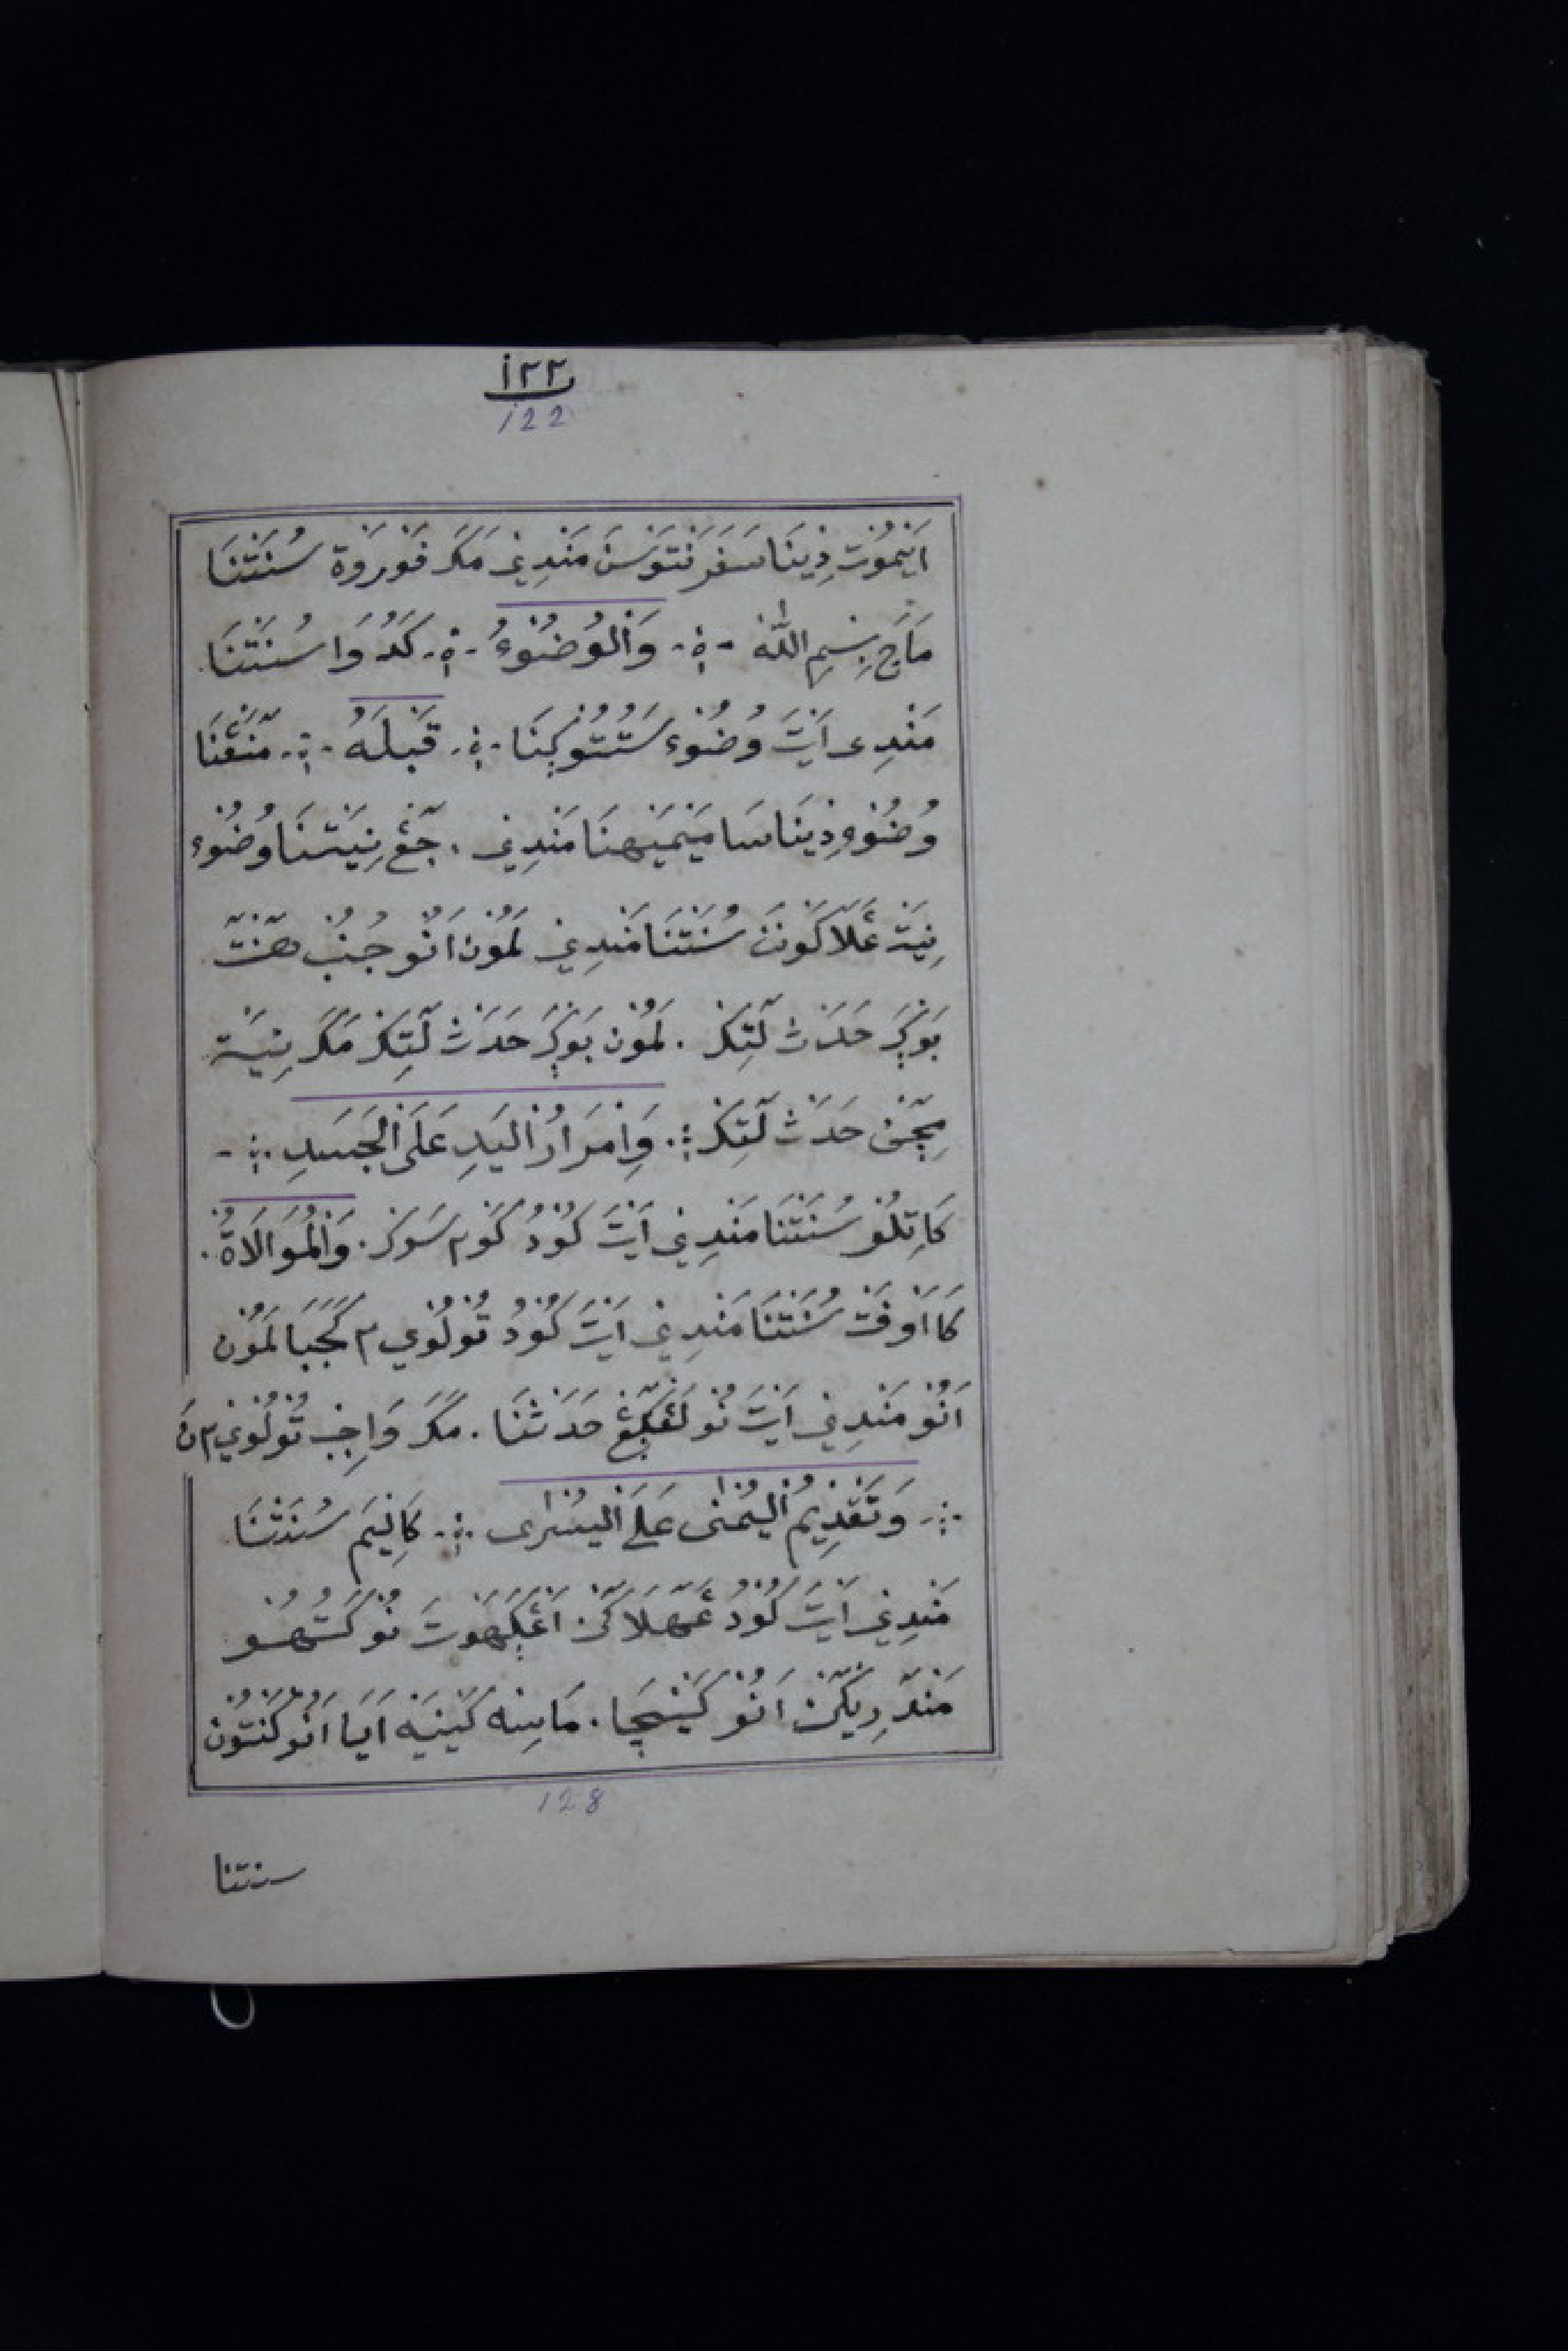 ١٢٢
122
اَيْمُوْتِ دِيْنَاسَفَرَنْتَوَسَنَ مَنْدِيْ مَكَ فَوْرَوَةْ سُنَتْنَا
مَاجَ بِسْمِ اللّٰهْ ۰ وَالْوُضُوْءُ ۰ كَدُوَا سُنَتْنَا
مَنْدِى اَيْتَ وُضُوْء سَتُتُوْكِنَا ۰ قَبْلَهُ ۰ مَنَعْنَا
وُضُوْءِ دِيْنَاسَا مَيْمَيْهِنَا مَنْدِيْ . جَڠ نِيَتْنَا وُضُوْء
نِيَتْ عَلَاكَوْنَنَ سُنَتْنَا مَنْدِيْ لَمُوْن اَنُو جُنُبْ هَنْتَ
بَوْكَرَ حَدَثْ لَتِكَرْ . لَمُوْن بَوْكَرَ حَدَثْ لَتِكَرْ مَكَ نِيَةْ
مِچَنْ حَدَثْ لَتِكَرْ ۰ وَاِمْرَارُ الْيَدِ عَلَى الْجَسَدِ ۰
كَاتِلُوْ سُنَتْنَا مَنْدِيْ اَيْتَ كُوْدُ كَوْم سَوَكَرْ . وَالْمُوَالَاةُ .
كَااَوْفَتْ سُنَتْنَا مَنْدِيْ اَيْتَ كُوْدُ تُوْلُوْي ٢ كَجَبَا لَمُوْن
اَنُوْ مَنْدِيْ اَيْتَ نُوْ لَڠْكَڠْ حَدَثْنَا . مَكَ وَاجِبْ تُوْلُوْيْ ٢ نَ
۰ وَتَقْدِيْمُ الْيُمْنٰى عَلَى الْيُسْرٰى ۰ كَالِيْمَ سُنَتْنَا
مَنْدِيْ اَيْتَ كُوْدُ عَهْلَاكَنْ اَڠْكَهَوْتَ نُوْ كَتُهُوْ
مَنْدَرِيْكَنْ اَنُوْ كَيْنْچَا . مَاسِهْ كَيْنِيَهْ اَيَا اَنُوْ كَنْتُوْن
128
سنتنا